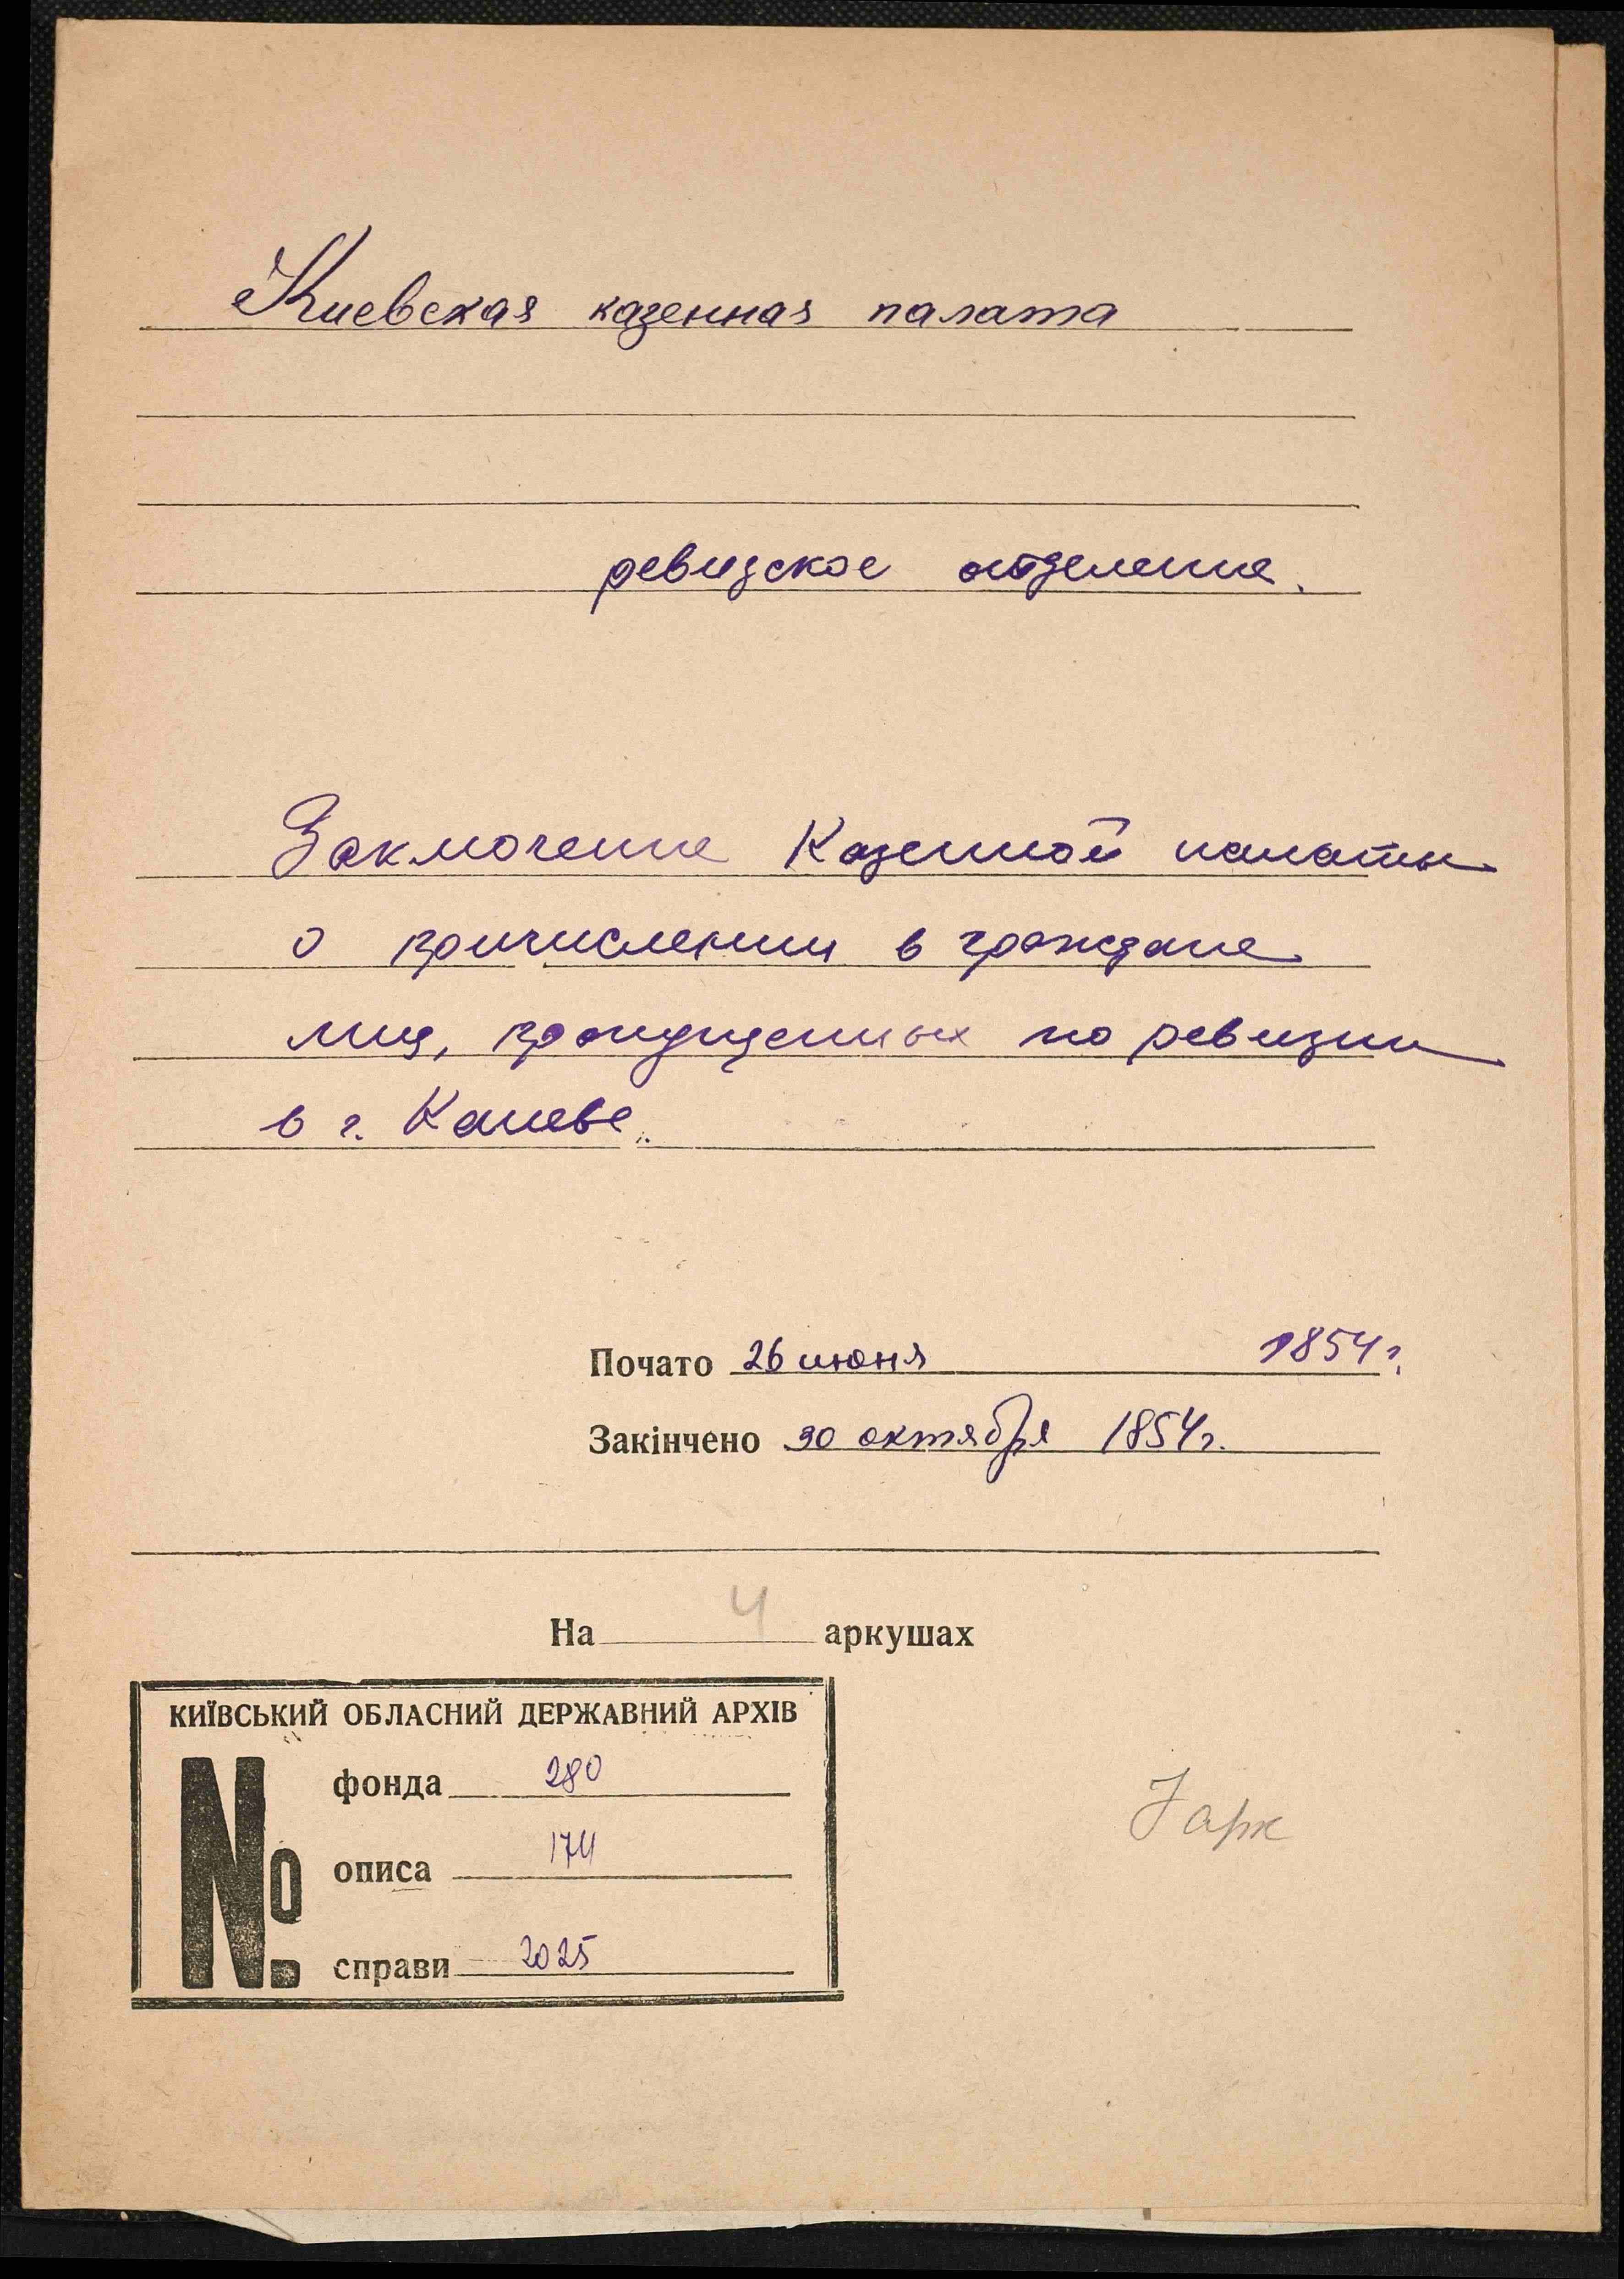 Киевская казенная палата
ревизское отделение.
Заключение Казенной палаты
о причислении в граждане
лиц, пропущенных по ревизии
в г. Каневе.
Почато 26 июня 1854 г.
Закінчено 30 октября 1854 г.
На 4 аркушах
КИЇВСЬКИЙ ОБЛАСНИЙ ДЕРЖАВНИЙ АРХІВ
№
фонда 280
описа 174
справи 2025